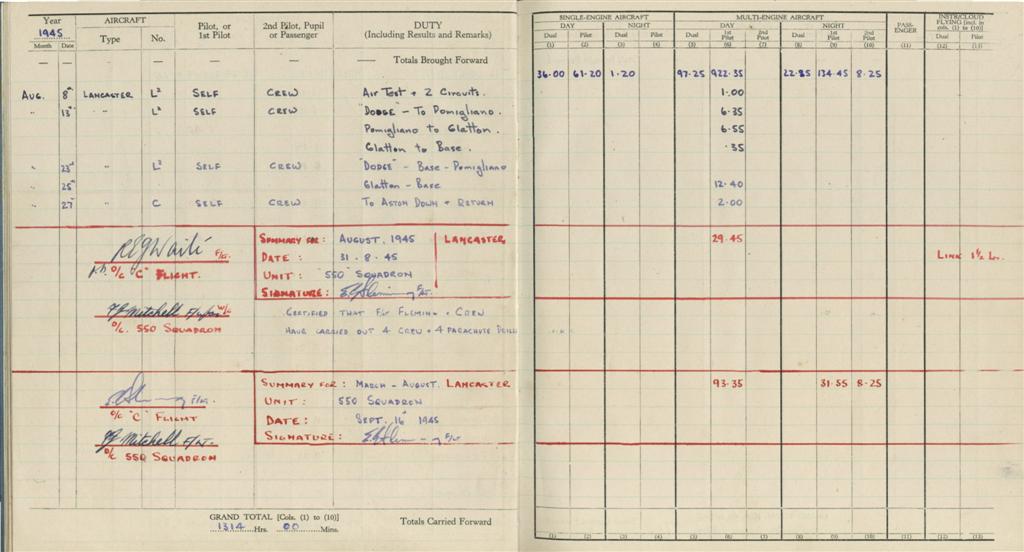 Year AIRCRAFT Pilot, or 1st Pilot 2nd Pilot, Pupil or Passenger DUTY (Including Results and Remarks) SINGLE-ENGINE AIRCRAFT MULTI-ENGINE AIRCRAFT PASS-ENGER INSTR/CLOUD FLYING [Incl. in cols. (1) to (10)]
1945 DAY NIGHT DAY NIGHT
Month Date Type No. Dual Pilot Dual Pilot Dual 1st Pilot 2nd Pilot Dual 1st Pilot 2nd Pilot Dual Pilot
(1) (2) (3) (4) (5) (6) (7) (8) (9) (10) (11) (12) (13)
— — — — — — — Totals Brought Forward 36.00 61.20 1.20 97.25 922.35 22.25 134.45 8.25
AUG. 8th LANCASTER L² SELF CREW AIR TEST + 2 CIRCUITS. 1.00
" 13th " L² SELF CREW "DODGE" - TO POMIGLIANO. 6.35
POMIGLIANO TO GLATTON. 6.55
GLATTON TO BASE. .35
" 23rd " L² SELF CREW "DODGE" - BASE - POMIGLIANO
" 25th GLATTON - BASE 12.40
" 27th " C SELF CREW TO ASTON DOWN + RETURN 2.00
SUMMARY FOR: AUGUST. 1945 LANCASTER 29.45
REGWaite F/Lt. DATE: 31.8.45 LINK 1½ hr.
O/C "C" FLIGHT. UNIT: 550 SQUADRON
SIGNATURE:
Mitchell W/C CERTIFIED THAT F/Lt FLEMING + CREW
O/C. 550 SQUADRON HAVE CARRIED OUT 4 CREW + 4 PARACHUTE DRILLS
SUMMARY FOR: MARCH - AUGUST. LANCASTER 93.35 31.55 8.25
F/Lt. UNIT: 550 SQUADRON
O/C "C" FLIGHT DATE: SEPT. 16th 1945
Mitchell F/Lt. SIGNATURE: F/Lt
O/C 550 SQUADRON
GRAND TOTAL [Cols. (1) to (10)] Totals Carried Forward
1314 Hrs. 00 Mins.
(1) (2) (3) (4) (5) (6) (7) (8) (9) (10) (11) (12) (13)